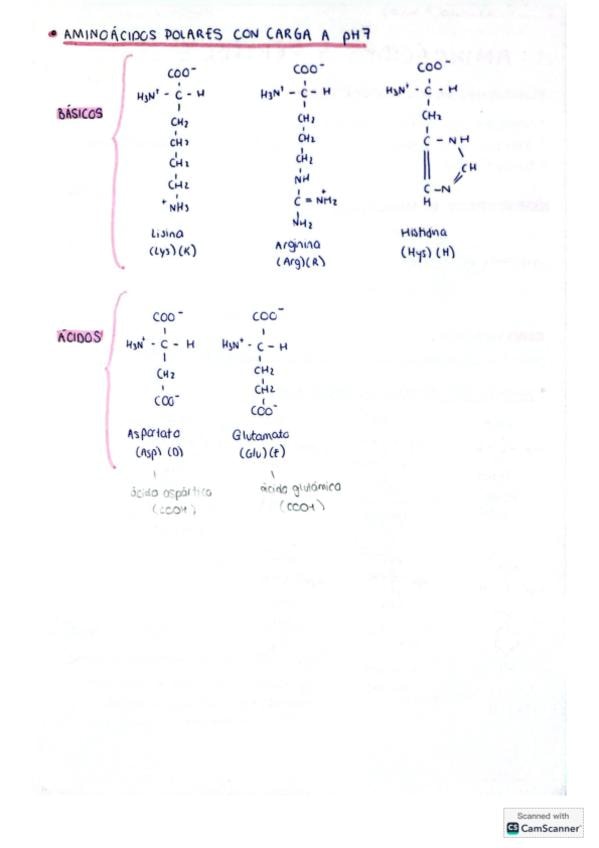 • AMINOÁCIDOS POLARES CON CARGA A pH7
BÁSICOS
COO⁻
H₃N⁺ - C - H
CH₂
CH₂
CH₂
CH₂
⁺NH₃
Lisina
(Lys) (K)
COO⁻
H₃N⁺ - C - H
CH₂
CH₂
CH₂
NH
C = NH₂⁺
NH₂
Arginina
(Arg) (R)
COO⁻
H₃N⁺ - C - H
CH₂
C - NH
CH
C - N
H
Histidina
(Hys) (H)
ÁCIDOS
COO⁻
H₃N⁺ - C - H
CH₂
COO⁻
Aspartato
(Asp) (D)
ácido aspártico
(COOH)
COO⁻
H₃N⁺ - C - H
CH₂
CH₂
COO⁻
Glutamato
(Glu) (E)
ácido glutámico
(COOH)
Scanned with
CS CamScanner